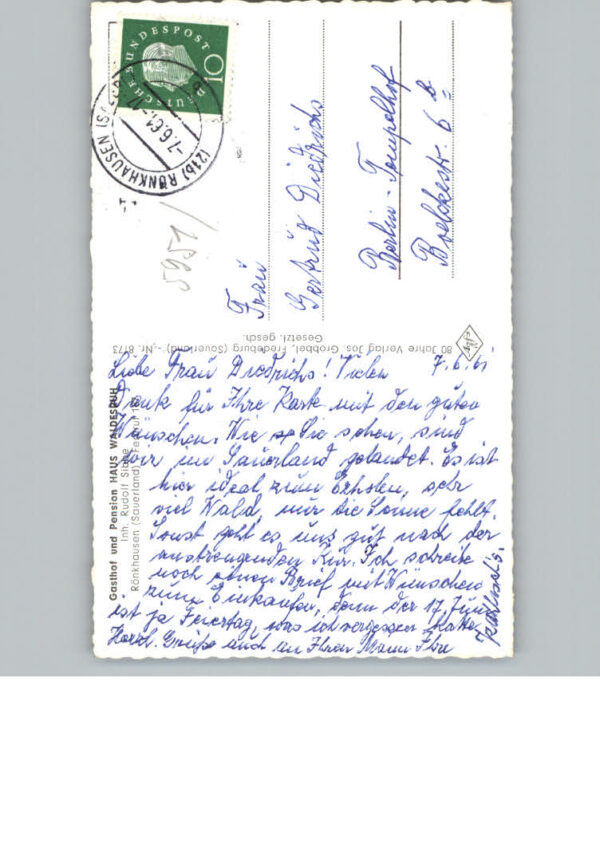 DEUTSCHE BUNDESPOST
10
(21b) RÖNKHAUSEN
-7.6.61.-
5951/
Frau
Gertrud Diedrichs
Berlin-Tempelhof
Boelckestr. 6
80 Jahre Verlag Jos. Grobbel, Fredeburg (Sauerland) - Nr. 8773
Gesetzl. gesch.
Gasthof und Pension HAUS WALDESRUH
Inh. Rudolf
Rönkhausen (Sauerland)
7.6.61
Liebe Frau Diedrichs! Vielen
Dank für Ihre Karte mit den guten
Wünschen. Wie Sie sehen, sind
wir im Sauerland gelandet. Es ist
hier ideal zum Erholen, sehr
viel Wald, nur die Sonne fehlt.
Sonst geht es uns gut nach der
anstrengenden Kur. Ich schreibe
noch einen Brief mit Wünschen
zum Einkaufen, denn der 17. Juni
ist ja Feiertag, was ich vergessen hatte.
Herzl. Grüße auch an Ihren Mann Ihre